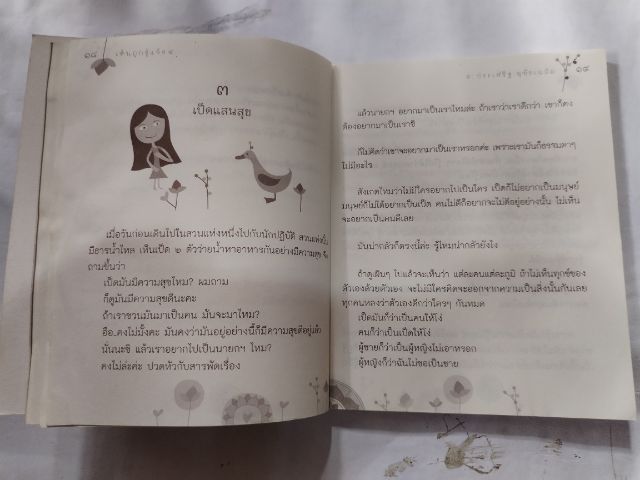 ๑๘
๓
เป็ดแสนสุข
เมื่อวันก่อนเดินไปในสวนแห่งหนึ่งไปกับนักปฏิบัติ สวนแห่งนั้น
มีธารน้ำไหล เห็นเป็ด ๒ ตัวว่ายน้ำหาอาหารกันอย่างมีความสุข จึง
ถามขึ้นว่า
เป็ดมันมีความสุขไหม? ผมถาม
ก็ดูมันมีความสุขดีนะคะ
ถ้าเราชวนมันมาเป็นคน มันจะมาไหม?
อือ..คงไม่มั้งคะ มันคงว่ามันอยู่อย่างนี้ก็มีความสุขดีอยู่แล้ว
นั่นนะซิ แล้วเราอยากไปเป็นนายกฯ ไหม?
คงไม่ล่ะค่ะ ปวดหัวกับสารพัดเรื่อง
๑๙
แล้วนายกฯ อยากมาเป็นเราไหมล่ะ ถ้าเราว่าเราดีกว่า เขาก็คง
ต้องอยากมาเป็นเราซิ
ก็ไม่คิดว่าเขาจะอยากมาเป็นเราหรอกค่ะ เพราะเรามันก็ธรรมดาๆ
ไม่มีอะไร
สังเกตไหมว่าไม่มีใครอยากไปเป็นใคร เป็ดก็ไม่อยากเป็นมนุษย์
มนุษย์ก็ไม่ได้อยากเป็นเป็ด คนไม่ดีก็อยากจะไม่ดีอยู่อย่างนั้น ไม่เห็น
จะอยากเป็นคนดีเลย
มันน่ากลัวก็ตรงนี้ล่ะ รู้ไหมน่ากลัวยังไง
ถ้าดูเผินๆ ไปแล้วจะเห็นว่า แต่ละคนแต่ละภูมิ ถ้าไม่เห็นทุกข์ของ
ตัวเองด้วยตัวเอง จะไม่มีใครคิดจะออกจากความเป็นสิ่งนั้นกันเลย
ทุกคนหลงว่าตัวเองดีกว่าใครๆ กันหมด
เป็ดมันก็ว่าเป็นคนให้โง่
คนก็ว่าเป็นเป็ดให้โง่
ผู้ชายก็ว่าเป็นผู้หญิงไม่เอาหรอก
ผู้หญิงก็ว่าฉันไม่ขอเป็นชาย